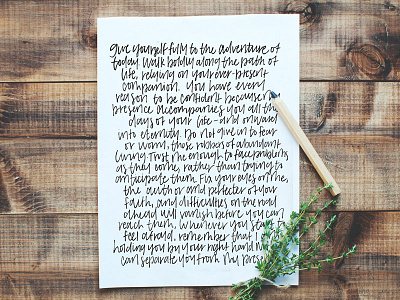 Give yourself fully to the adventure of
today. Walk boldly along the path of
life, relying on your ever-present
companion. You have every
reason to be confident because my
presence accompanies you all the
days of your life - and onward
into eternity. Do not give in to fear
or worry, those robbers of abundant
living. Trust me enough to face problems
as they come, rather than trying to
anticipate them. Fix your eyes on me,
the author and perfecter of your
faith, and difficulties on the road
ahead will vanish before you can
reach them. Whenever you start to
feel afraid, remember that I am
holding you by your right hand. Nothing
can separate you from My presence